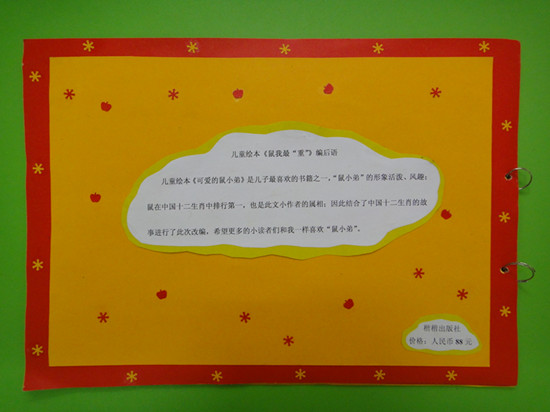 儿童绘本《鼠我最“重”》编后语
儿童绘本《可爱的鼠小弟》是儿子最喜欢的书籍之一，“鼠小弟”的形象活泼、风趣；
鼠在中国十二生肖中排行第一，也是此文小作者的属相；因此结合了中国十二生肖的故
事进行了此次改编，希望更多的小读者们和我一样喜欢“鼠小弟”。
楷楷出版社
价格：人民币 88 元